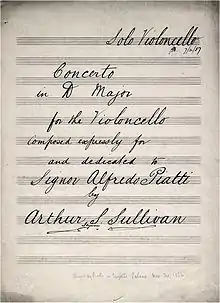 Solo Violoncello
Concerto
in D Major
for the Violoncello
composed expressly for
and dedicated to
Signor Alfredo Piatti
by
Arthur S. Sullivan